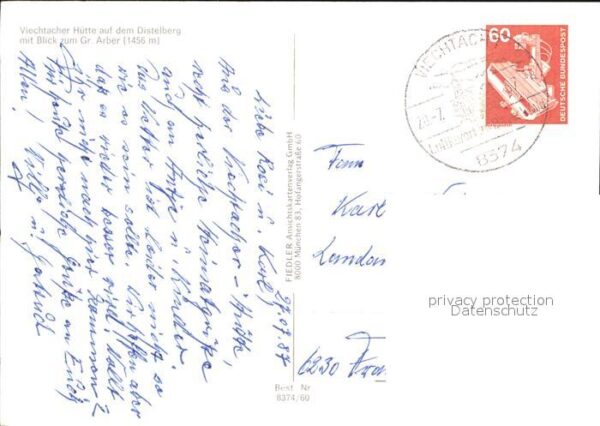 Viechtacher Hütte auf dem Distelberg
mit Blick zum Gr. Arber (1456 m)
27.07.87
Liebe Rosi u. Karl,
Aus der Viechtacher-Hütte,
recht herzliche Heimatgrüße
auch an Antje u. Kinder.
Das Wetter ist leider nicht so
wie es sein sollte. Wir hoffen aber
daß es wieder besser wird! Wollt
Ihr nicht nach hier kommen?
Für heute herzliche Grüße an Euch
Allen! Willi u.
FIEDLER Ansichtskartenverlag GmbH
8000 München 83, Hofangerstraße 60
Best Nr
8374/60
60
DEUTSCHE BUNDESPOST
VIECHTACH
28.-7.
Luftkurort
8374
Karl
6230 Fra
privacy protection
Datenschutz